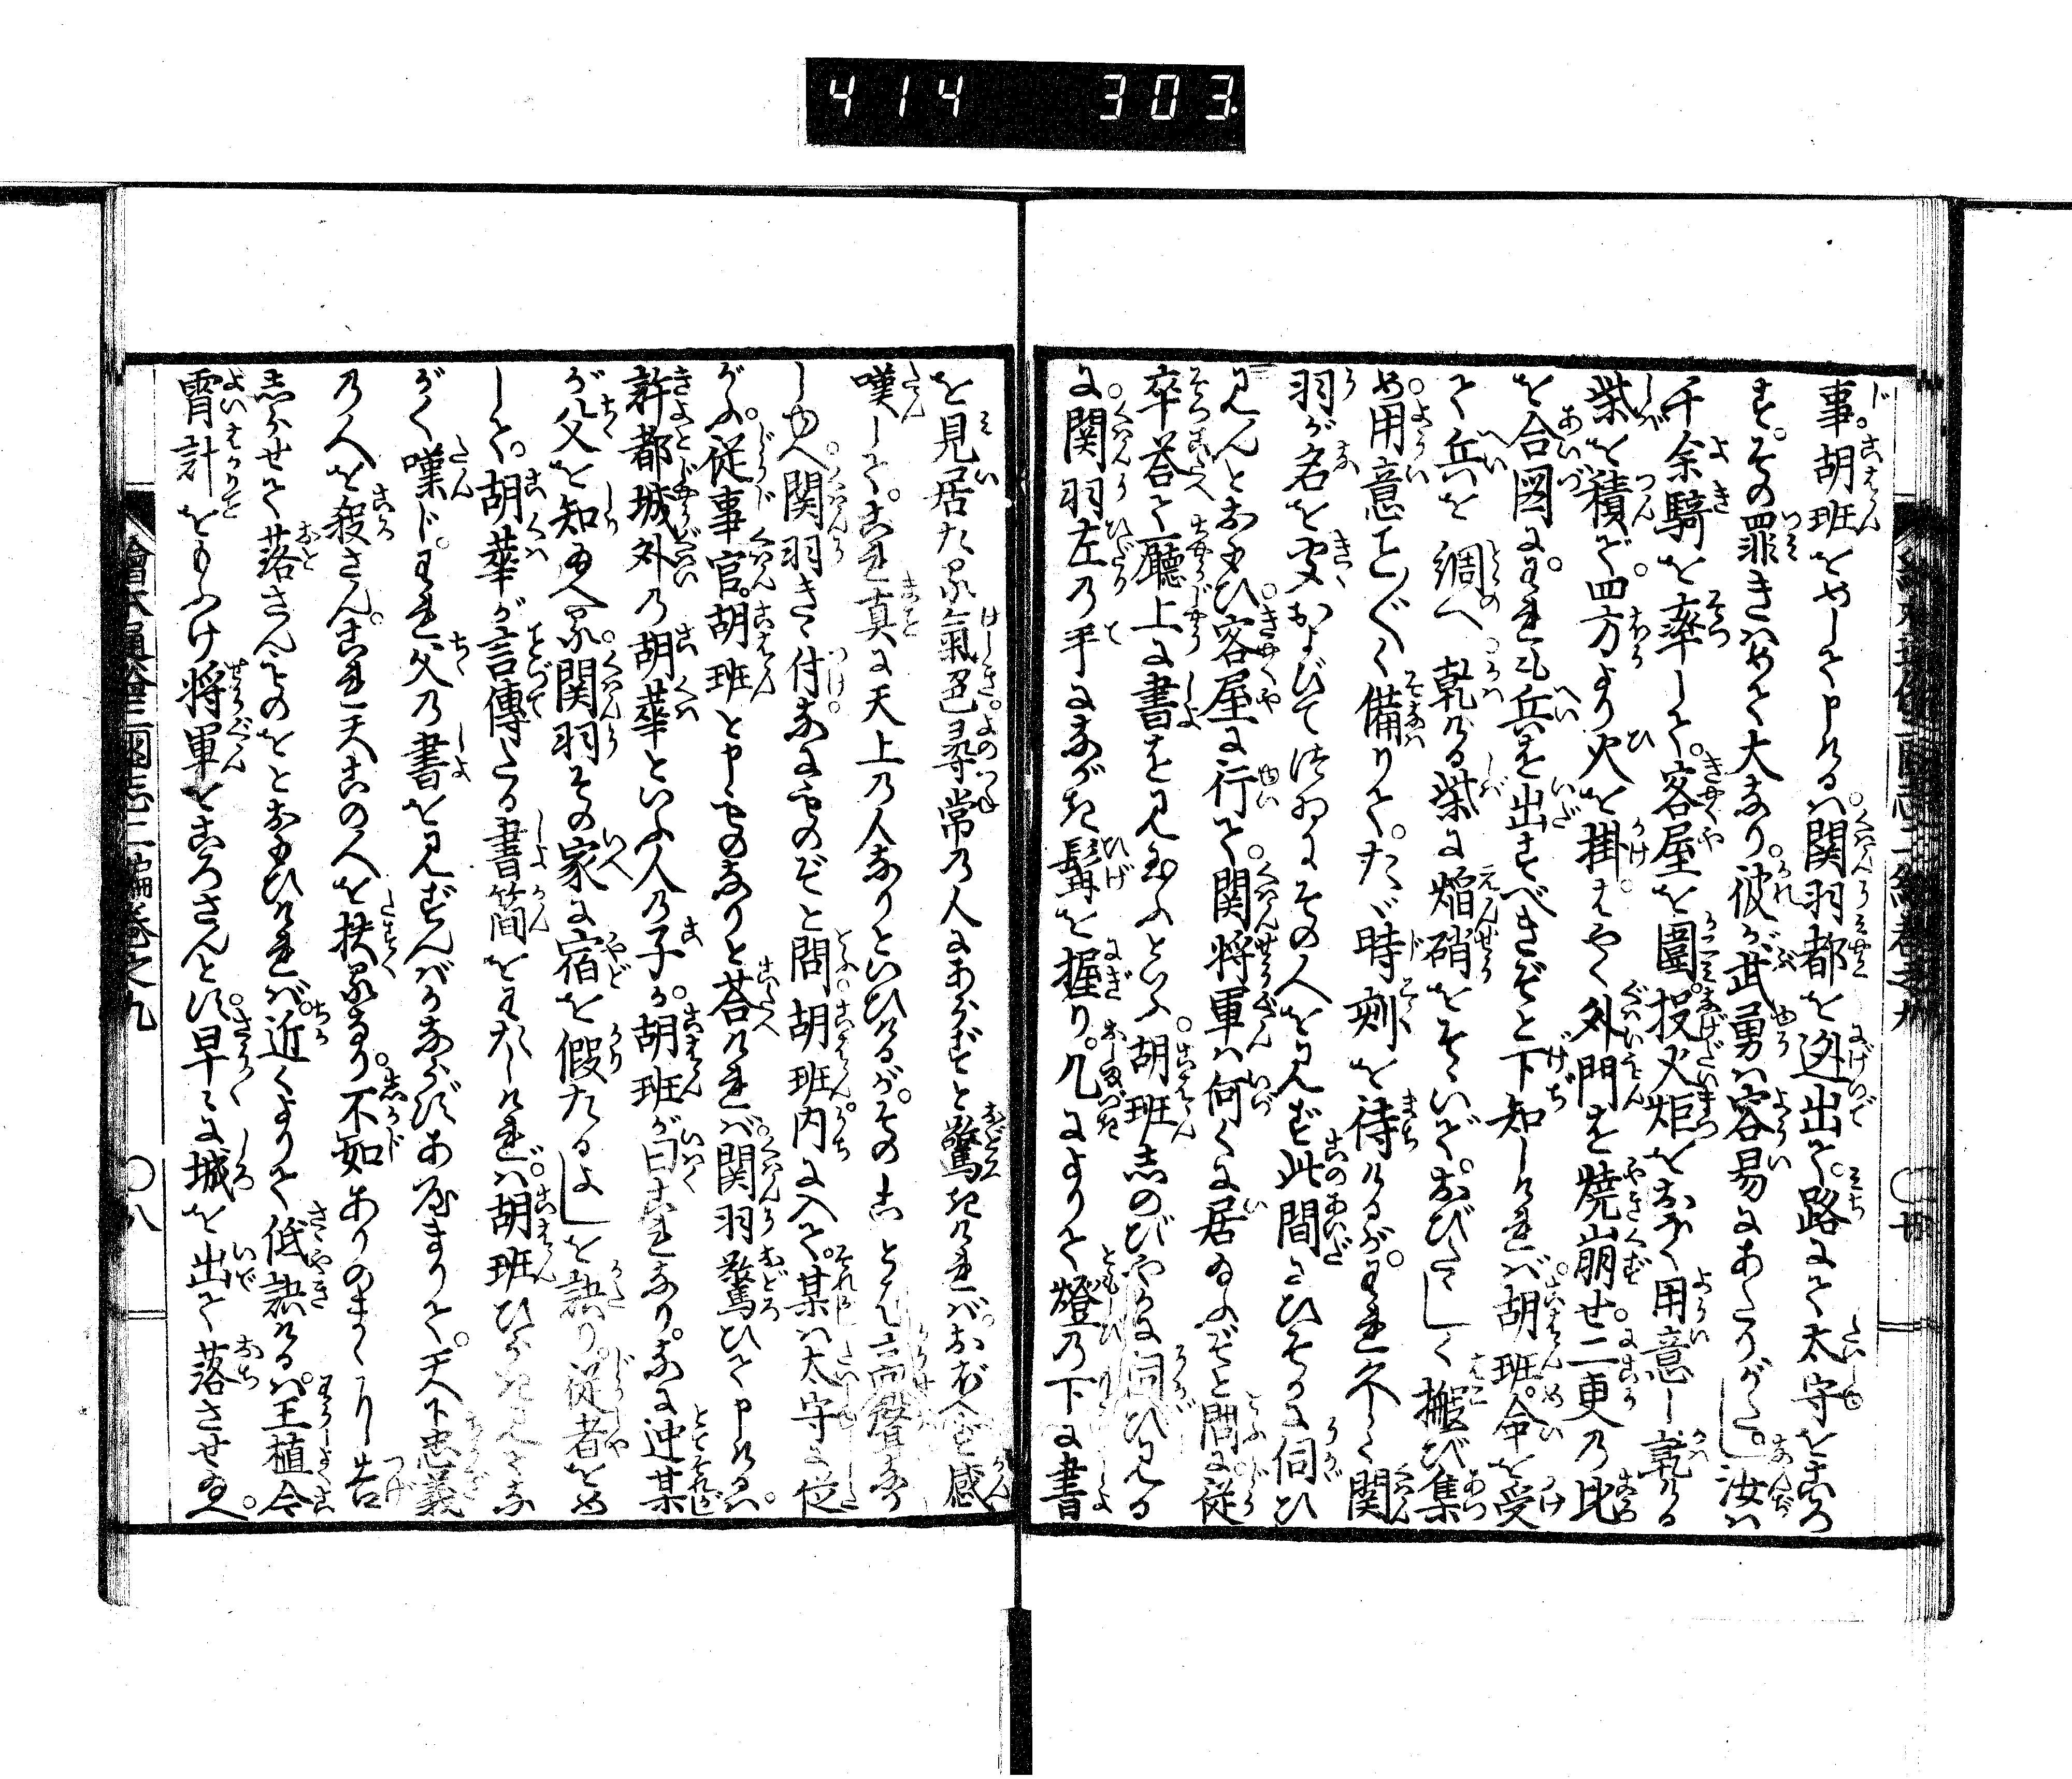 414 303
事。胡班をめして申けるハ。関羽都を迯出て。路にて太守をころ
す。その罪きハめて大なり。彼が武勇ハ容易にあたりがたし。汝ハ
千余騎を率して。客屋を圍。投火炬をおほく用意し乾ける
柴を積で。四方より火を掛。はやく外門を焼崩せ二更の比
を合図に。われも兵を出すべきぞと下知しけれバ。胡班。命を受
て兵を調へ。乾ける柴に焔硝をそゝいで。おびたゝしく搬び集
め。用意こと〴〵く備りて。たゞ時刻を待けるが。われ久しく関
羽が名を聞およびて。いまだその人を見ず此間にひそかに伺ひ
見んとおもひ。客屋に行て。関将軍ハ何くに居給ふぞと問に。従
卒答て。廳上に書を見給ふといふ。胡班しのびやかに伺ひ見る
に。関羽左の手にながき髯を握り。几によりて燈の下に書
を見居たる氣色。尋常の人にあらずと驚きけれバ。おぼへず感
嘆して。これ真に天上の人なりといひけるが。そのことば高聲なり
しゆへ。関羽きゝ付。なにものぞと問。胡班内に入て。某ハ太守に従
がふ。従事官。胡班と申ものなりと答けれバ。関羽驚ひて申けるハ。
許都城外の胡華といふ人の子か。胡班が曰これなり。なに迚某
が父を知給へる。関羽その家に宿を假たるよしを語り。従者をめ
して。胡華が言傳たる書簡をわたしけれバ。胡班ひらき見てな
がく嘆じ。われ父の書を見ずんバあやまりて。天下忠義
の人を殺さん。これ天この人を扶るなり。不知ありのまゝに告
しらせて落さんものをとおもひけれバ。近くよりて低語けるハ。王植今
宵計をもふけ将軍をころさんとす。早々に城を出て落させ給へ。
繪本通俗三國志三編巻之九 〇八